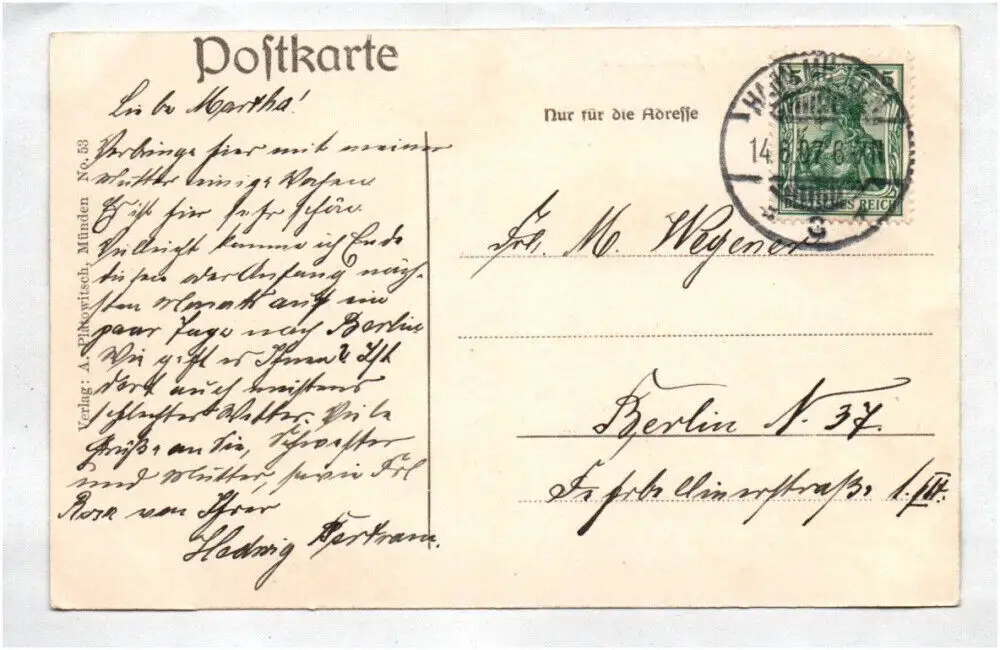 Postkarte
Liebe Martha!
Verbringe hier mit meiner
Mutter einige Wochen.
Es ist hier sehr schön.
Vielleicht komme ich Ende
diesen oder Anfang näch-
sten Monats auf ein
paar Tage nach Berlin
Wie geht es Ihnen? Ist
dort auch meistens
schlechtes Wetter. Viele
Grüße an Sie, Schwester
und Mutter, sowie Frl
Rosa von Ihrer
Hedwig Bertram.
Verlag: A. Platowitsch, Münden No. 53
Nur für die Adresse
14.6.07.8
5
DEUTSCHES REICH
Frl. M. Wegener
Berlin N. 37.
Fehrbellinerstraße 1. III.